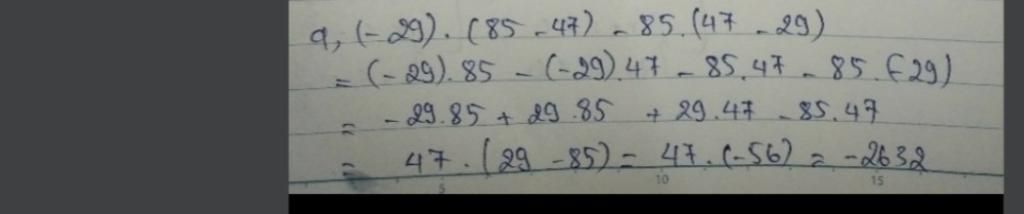 a, (-29). (85 - 47) - 85. (47 - 29)
= (-29). 85 - (-29). 47 - 85. 47 - 85. (-29)
= -29.85 + 29.85 + 29.47 - 85.47
= 47. (29 - 85) = 47. (-56) = -2632
5 10 15